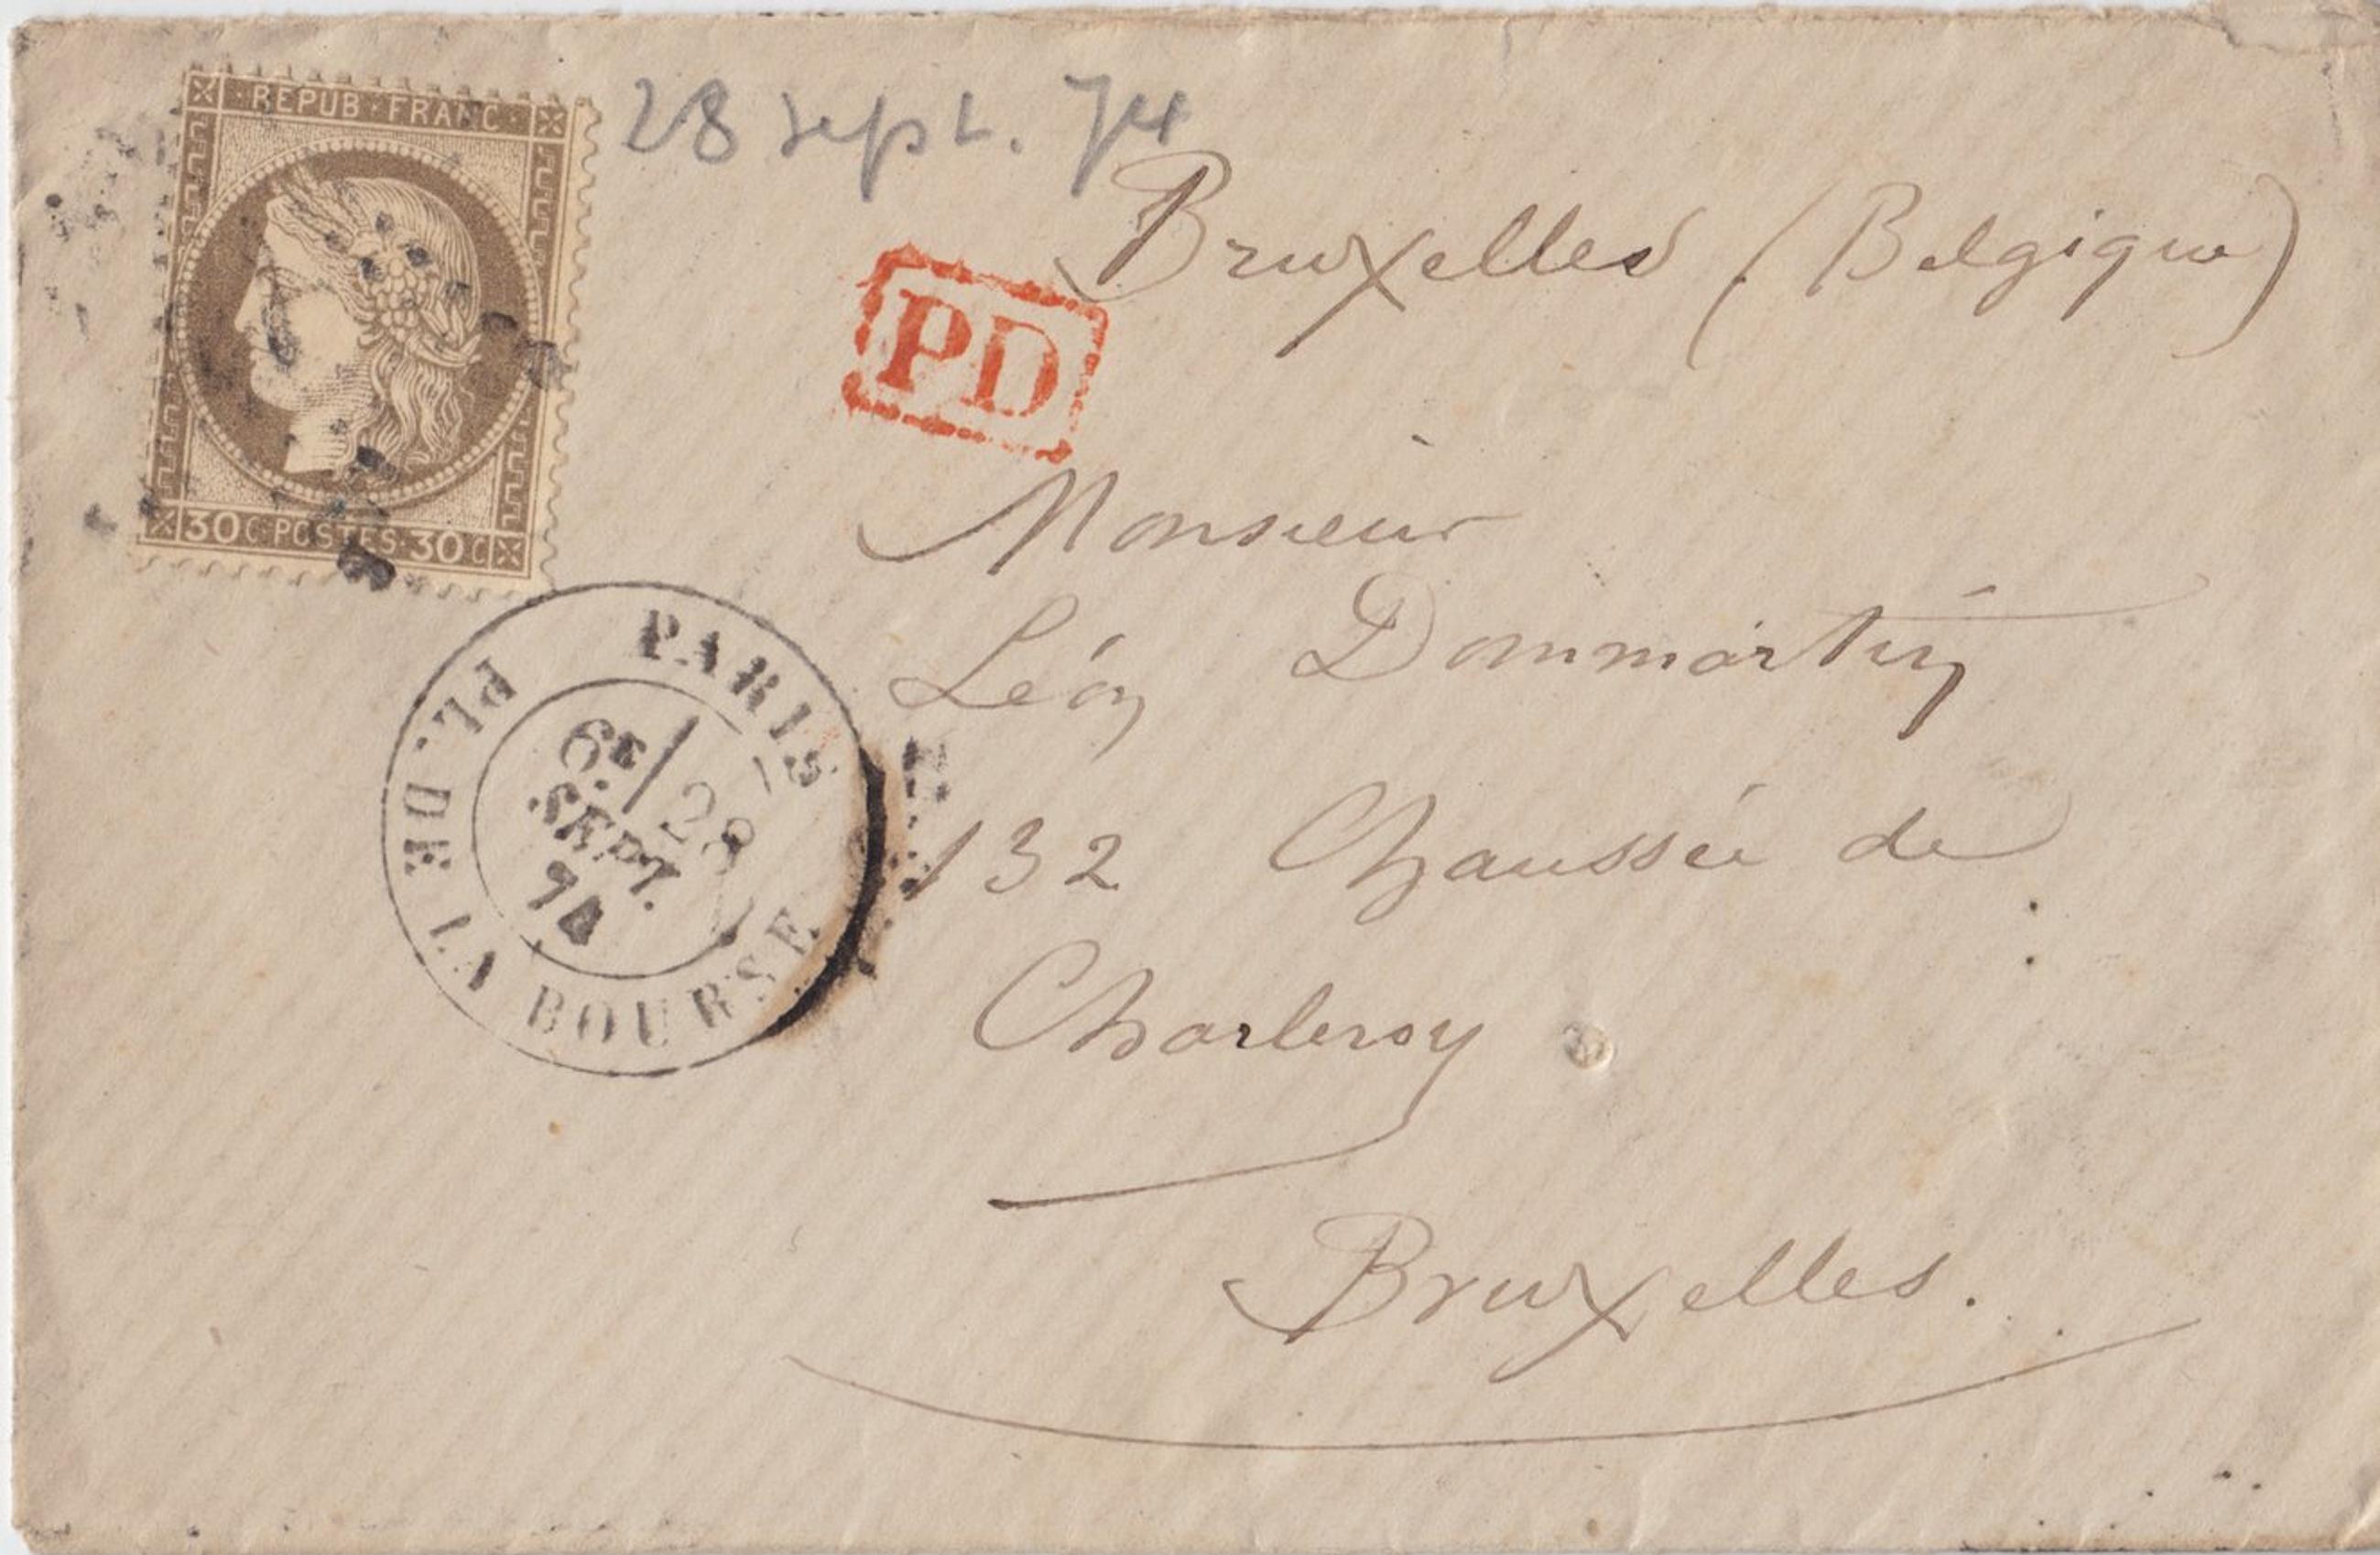 REPUB·FRANC
30C·POSTES·30C
28 sept. 74
Bruxelles (Belgique)
PD
Monsieur
Léon Dommartin
PARIS
PL. DE LA BOURSE
6E/28
SEPT.
74
132 Chaussée de
Charleroy
Bruxelles.